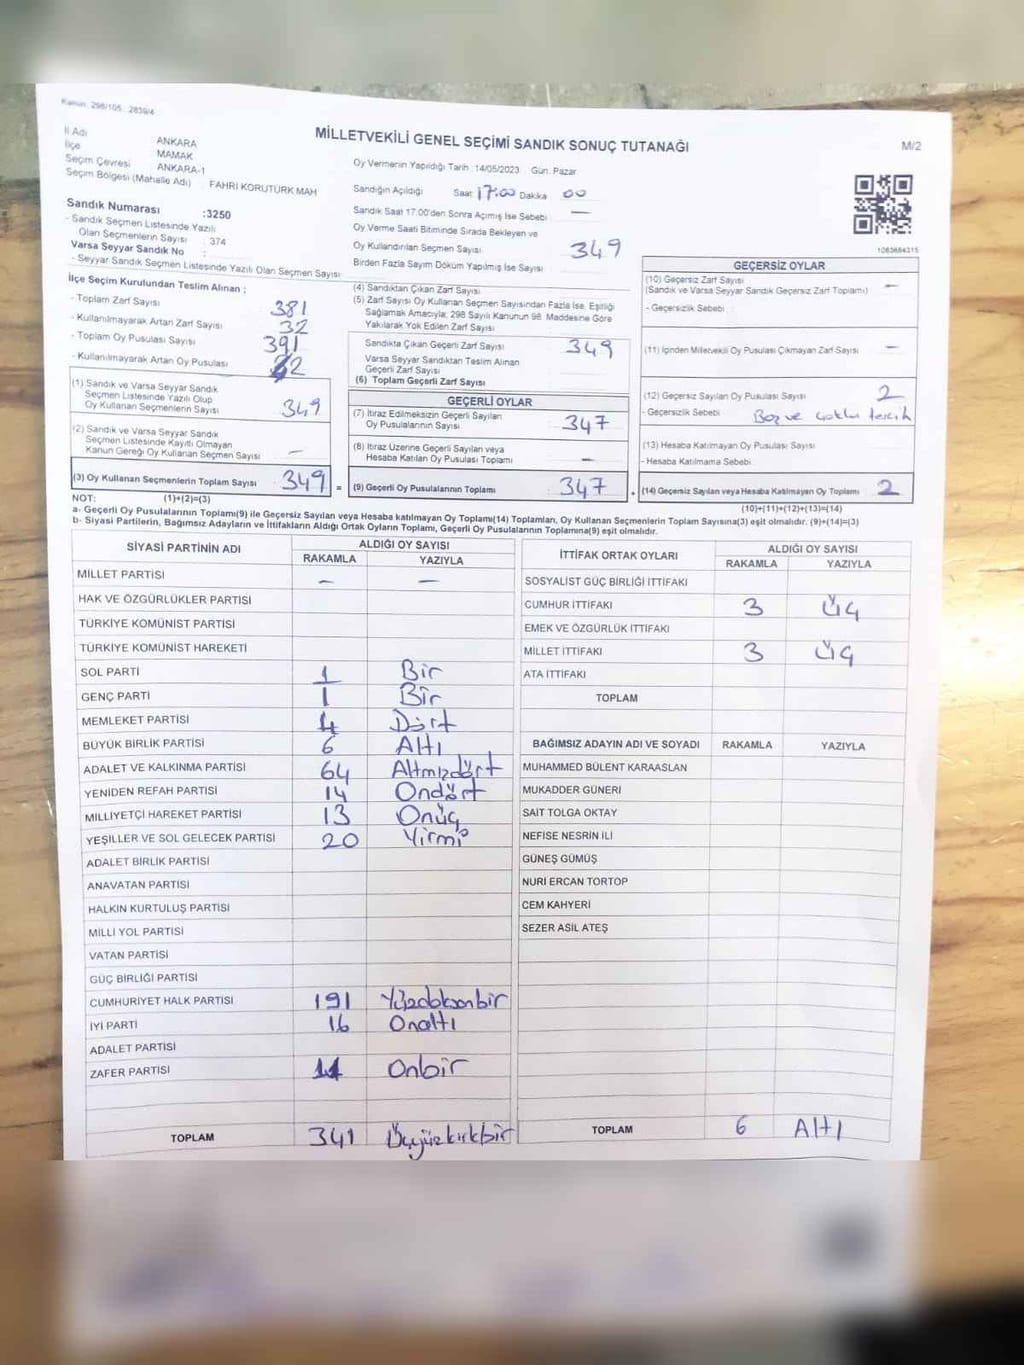 Kanun: 298/105, 2839/4
MİLLETVEKİLİ GENEL SEÇİMİ SANDIK SONUÇ TUTANAĞI
M/2
İl Adı ANKARA
İlçe MAMAK
Seçim Çevresi ANKARA-1
Seçim Bölgesi (Mahalle Adı) : FAHRİ KORUTÜRK MAH
Sandık Numarası :3250
- Sandık Seçmen Listesinde Yazılı
Olan Seçmenlerin Sayısı : 374
Varsa Seyyar Sandık No :
- Seyyar Sandık Seçmen Listesinde Yazılı Olan Seçmen Sayısı
Oy Vermenin Yapıldığı Tarih : 14/05/2023 Gün: Pazar
Sandığın Açıldığı Saat 17:00 Dakika 00
Sandık Saat 17:00'den Sonra Açımış İse Sebebi —
Oy Verme Saati Bitiminde Sırada Bekleyen ve
Oy Kullandırılan Seçmen Sayısı 349
Birden Fazla Sayım Döküm Yapılmış İse Sayısı
1063684315
İlçe Seçim Kurulundan Teslim Alınan ;
- Toplam Zarf Sayısı 381
- Kullanılmayarak Artan Zarf Sayısı 32
- Toplam Oy Pusulası Sayısı 391
- Kullanılmayarak Artan Oy Pusulası
(1) Sandık ve Varsa Seyyar Sandık
Seçmen Listesinde Yazılı Olup
Oy Kullanan Seçmenlerin Sayısı 349
(2) Sandık ve Varsa Seyyar Sandık
Seçmen Listesinde Kayıtlı Olmayan
Kanun Gereği Oy Kullanan Seçmen Sayısı —
(3) Oy Kullanan Seçmenlerin Toplam Sayısı 349 =
(4) Sandıktan Çıkan Zarf Sayısı
(5) Zarf Sayısı Oy Kullanan Seçmen Sayısından Fazla İse, Eşitliği
Sağlamak Amacıyla, 298 Sayılı Kanunun 98. Maddesine Göre
Yakılarak Yok Edilen Zarf Sayısı
Sandıkta Çıkan Geçerli Zarf Sayısı 349
Varsa Seyyar Sandıktan Teslim Alınan
Geçerli Zarf Sayısı
(6) Toplam Geçerli Zarf Sayısı
GEÇERLİ OYLAR
(7) İtiraz Edilmeksizin Geçerli Sayılan
Oy Pusulalarının Sayısı 347
(8) İtiraz Üzerine Geçerli Sayılan veya
Hesaba Katılan Oy Pusulası Toplamı —
(9) Geçerli Oy Pusulalarının Toplamı 347 +
GEÇERSİZ OYLAR
(10) Geçersiz Zarf Sayısı
(Sandık ve Varsa Seyyar Sandık Geçersiz Zarf Toplamı) —
- Geçersizlik Sebebi
(11) İçinden Milletvekili Oy Pusulası Çıkmayan Zarf Sayısı —
(12) Geçersiz Sayılan Oy Pusulası Sayısı 2
- Geçersizlik Sebebi Boş ve çoklu tercih
(13) Hesaba Katılmayan Oy Pusulası Sayısı
- Hesaba Katılmama Sebebi
(14) Geçersiz Sayılan veya Hesaba Katılmayan Oy Toplamı 2
NOT: (1)+(2)=(3)
(10)+(11)+(12)+(13)=(14)
a- Geçerli Oy Pusulalarının Toplamı(9) ile Geçersiz Sayılan veya Hesaba katılmayan Oy Toplamı(14) Toplamları, Oy Kullanan Seçmenlerin Toplam Sayısına(3) eşit olmalıdır. (9)+(14)=(3)
b- Siyasi Partilerin, Bağımsız Adayların ve İttifakların Aldığı Ortak Oyların Toplamı, Geçerli Oy Pusulalarının Toplamına(9) eşit olmalıdır.
SİYASİ PARTİNİN ADI ALDIĞI OY SAYISI
RAKAMLA YAZIYLA
MİLLET PARTİSİ — —
HAK VE ÖZGÜRLÜKLER PARTİSİ
TÜRKİYE KOMÜNİST PARTİSİ
TÜRKİYE KOMÜNİST HAREKETİ
SOL PARTİ 1 Bir
GENÇ PARTİ 1 Bir
MEMLEKET PARTİSİ 4 Dört
BÜYÜK BİRLİK PARTİSİ 6 Altı
ADALET VE KALKINMA PARTİSİ 64 Altmızdört
YENİDEN REFAH PARTİSİ 14 Ondört
MİLLİYETÇİ HAREKET PARTİSİ 13 Onüç
YEŞİLLER VE SOL GELECEK PARTİSİ 20 Yirmi
ADALET BİRLİK PARTİSİ
ANAVATAN PARTİSİ
HALKIN KURTULUŞ PARTİSİ
MİLLİ YOL PARTİSİ
VATAN PARTİSİ
GÜÇ BİRLİĞİ PARTİSİ
CUMHURİYET HALK PARTİSİ 191 Yüzdoksanbir
İYİ PARTİ 16 Onaltı
ADALET PARTİSİ
ZAFER PARTİSİ 11 Onbir
TOPLAM 341 Üçyüzkırkbir
İTTİFAK ORTAK OYLARI ALDIĞI OY SAYISI
RAKAMLA YAZIYLA
SOSYALİST GÜÇ BİRLİĞİ İTTİFAKI
CUMHUR İTTİFAKI 3 Üç
EMEK VE ÖZGÜRLÜK İTTİFAKI
MİLLET İTTİFAKI 3 Üç
ATA İTTİFAKI
TOPLAM
BAĞIMSIZ ADAYIN ADI VE SOYADI RAKAMLA YAZIYLA
MUHAMMED BÜLENT KARAASLAN
MUKADDER GÜNERİ
SAİT TOLGA OKTAY
NEFİSE NESRİN İLİ
GÜNEŞ GÜMÜŞ
NURİ ERCAN TORTOP
CEM KAHYERİ
SEZER ASİL ATEŞ
TOPLAM 6 Altı